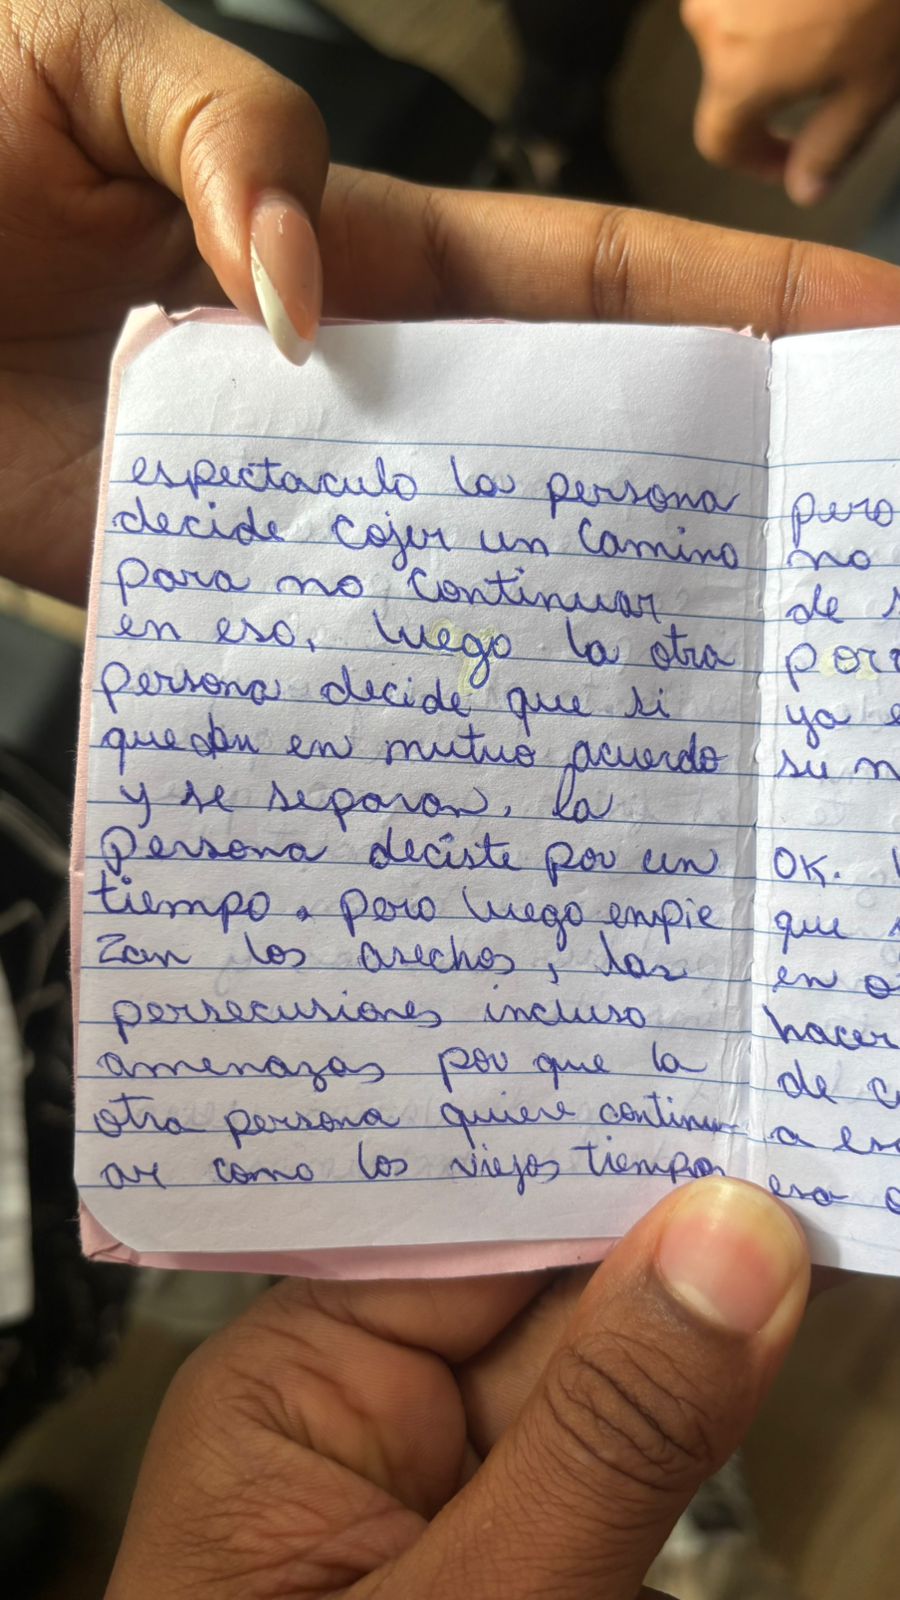 espectaculo la persona
decide cojer un camino
para no continuar
en eso, luego la otra
persona decide que si
quedan en mutuo acuerdo
y se separan. la
persona deciste por un
tiempo. pero luego empie
zan los asechos, las
persecusiones incluso
amenazas por que la
otra persona quiere continu-
ar como los viejos tiempos
pero
no
de
por
ya
su
OK.
que
en
hacer
de
a
esa